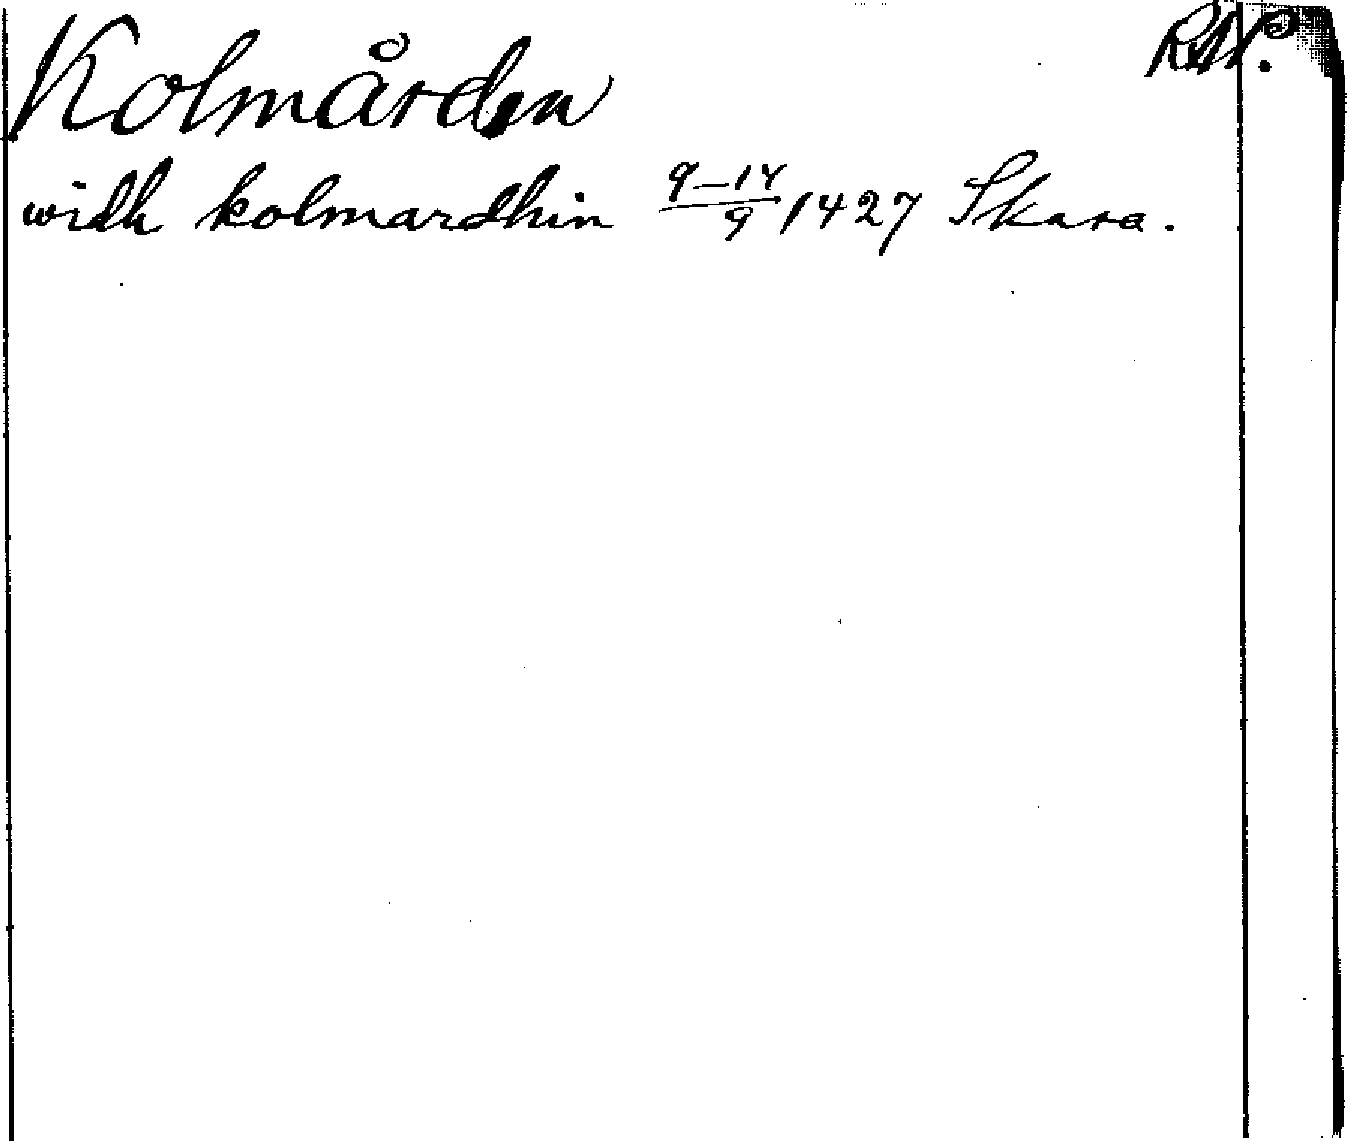 Kolmården
widh kolmardhin 9–14/9 1427 Skara.